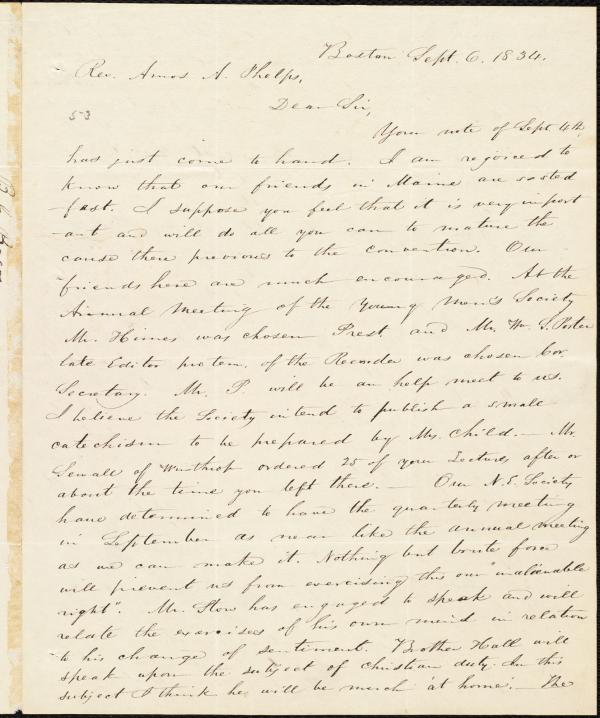 Boston Sept. 6. 1834.
Rev. Amos A. Phelps,
Dear Sir,
53
Your note of Sept. 4th,
has just come to hand. I am rejoiced to
know that our friends in Maine are so sted
-fast. I suppose you feel that it is very import
-ant and will do all you can to mature the
cause there previous to the convention. Our
friends here are much encouraged. At the
Annual Meeting of the Young Men's Society
Mr. Himes was chosen Prest. and Mr. Wm. S. Porter
late Editor protem. of the Recorder was chosen Cor.
Secretary. Mr. P. will be an help meet to us.
I believe the Society intend to publish a small
catechism to be prepared by Mrs. Child. — Mr.
Sewall of Winthrop ordered 25 of your Lectures after or
about the time you left there. — Our N.E. Society
have determined to have the quarterly meeting
in September as near like the annual meeting
as we can make it. Nothing but brute force
will prevent us from exercising this our "inalienable
right". Mr. Stow has engaged to speak and will
relate the exercises of his own mind in relation
to his change of sentiment. Brother Hall will
speak upon the subject of Christian duty. In this
subject I think he will be much 'at home'. — The